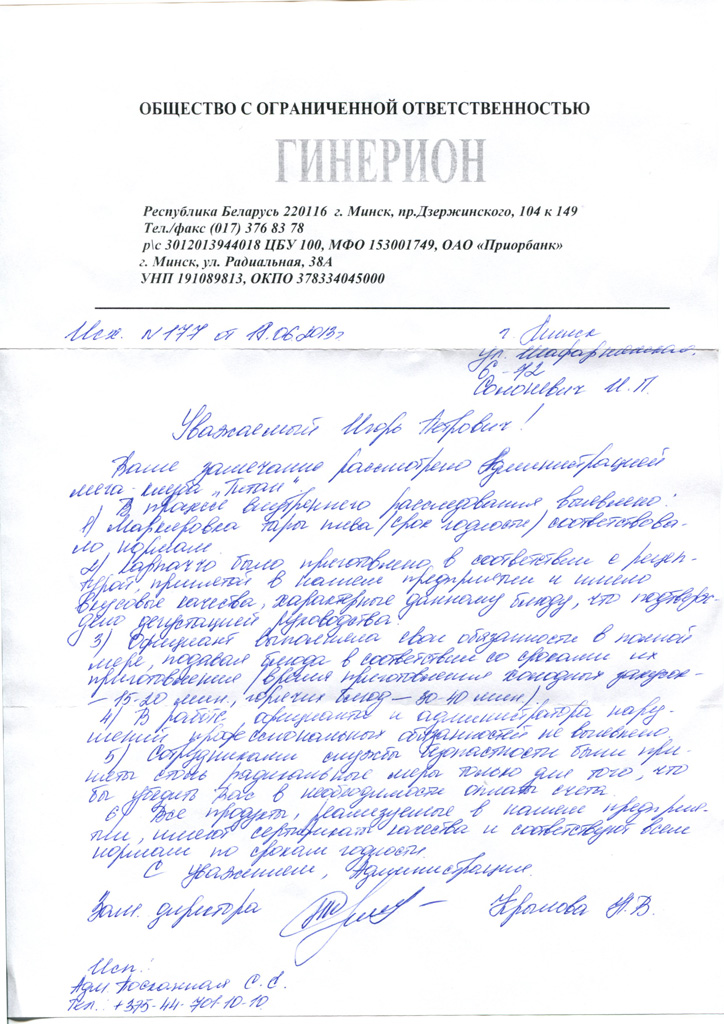 ОБЩЕСТВО С ОГРАНИЧЕННОЙ ОТВЕТСТВЕННОСТЬЮ
ГИНЕРИОН
Республика Беларусь 220116 г. Минск, пр.Дзержинского, 104 к 149
Тел./факс (017) 376 83 78
р\с 3012013944018 ЦБУ 100, МФО 153001749, ОАО «Приорбанк»
г. Минск, ул. Радиальная, 38А
УНП 191089813, ОКПО 378334045000
Исх. №177 от 19.06.2013г
г. Минск
ул.
6-72
Солоневич И.П.
Уважаемый Игорь Петрович!
Ваше замечание рассмотрено Администрацией
мега-клуба „Титан"
В процессе внутреннего расследования выявлено:
1) Маркировка тары пива (срок годности) соответствова-
ло нормам.
2) Карпаччо было приготовлено в соответствии с рецеп-
турой, принятой в нашем предприятии и имело
вкусовые качества, характерные данному блюду, что подтверж-
дено дегустацией руководства.
3) Официант выполняла свои обязанности в полной
мере, подавая блюда в соответствии со сроками их
приготовления (время приготовления холодных закусок -
- 15-20 мин., горячих блюд - 30-40 мин)
4) В работе официанта и администратора нару-
шений профессиональных обязанностей не выявлено.
5) Сотрудниками службы безопасности были при-
няты столь радикальные меры только для того, что
бы убедить Вас в необходимости оплаты счета.
6) Все продукты, реализуемые в нашем предприя-
тии, имеют сертификат качества и соответствуют всем
нормам по срокам годности.
С уважением, Администрация.
Зам. директора
Крылова Н.В.
Исп.:
Адм. С.С.
Тел.: +375-44-701-10-10